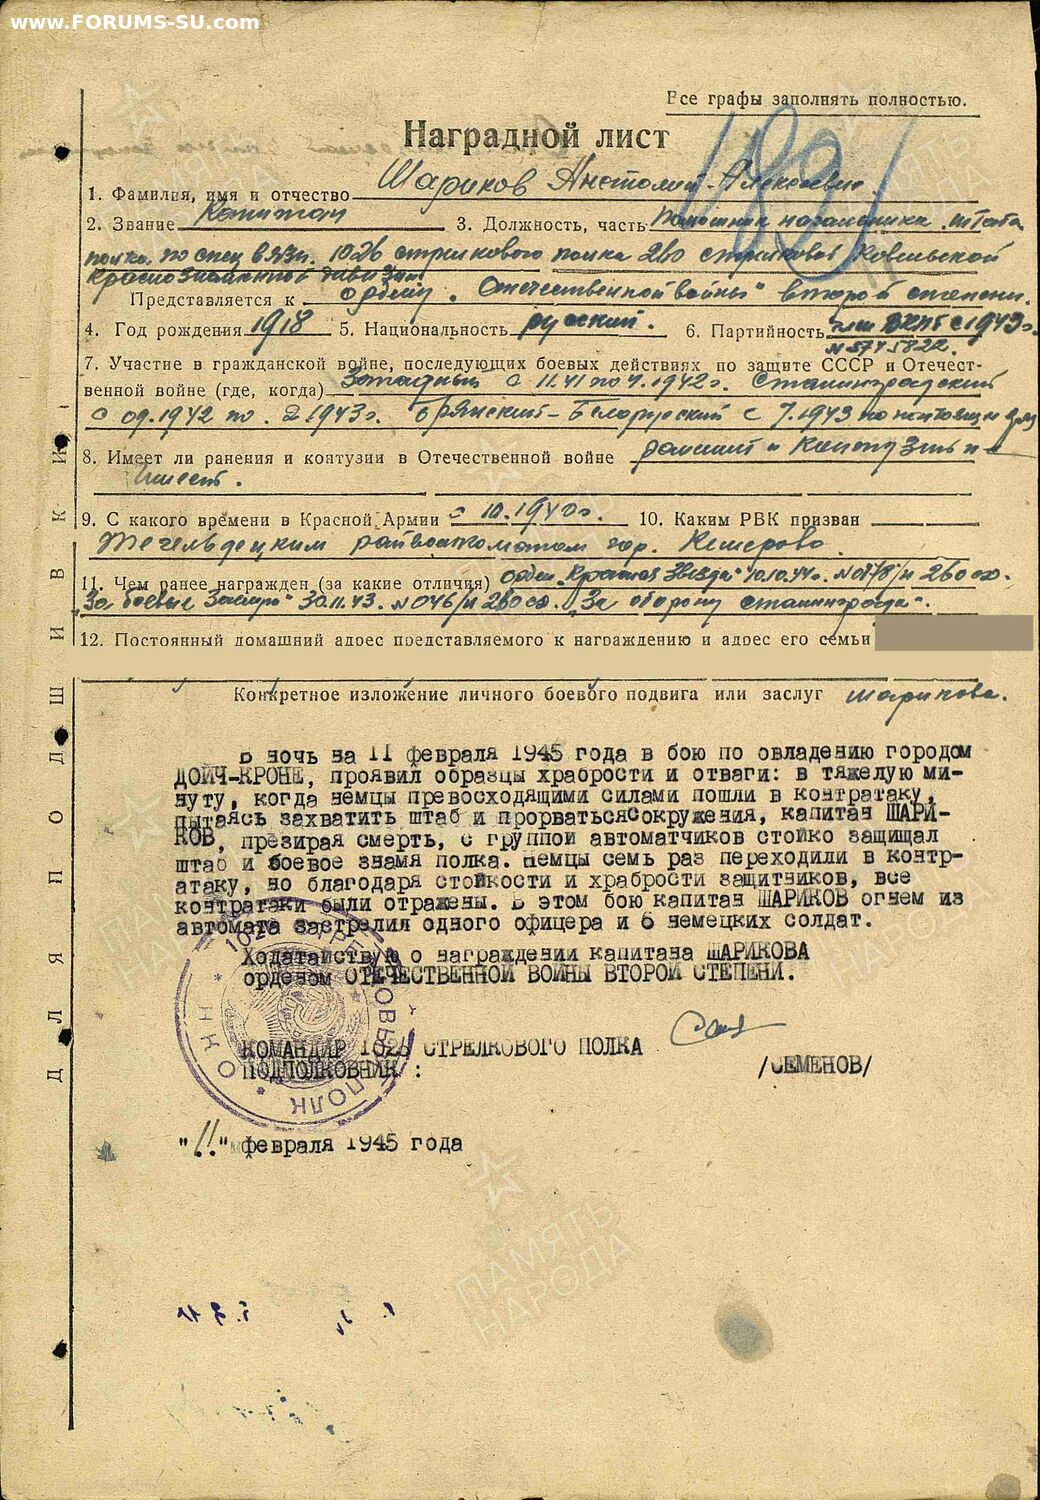 www.FORUMS-SU.com
Все графы заполнять полностью.
Наградной лист
1. Фамилия, имя и отчество Шариков Анатолий Алексеевич.
2. Звание Капитан 3. Должность, часть Помошник начальника штаба
полка по спец связи 1026 стрелкового полка 260 стрелковой Ковельской
Краснознаменной дивизии
Представляется к ордену „Отечественной войны" второй степени.
4. Год рождения 1918 5. Национальность русский. 6. Партийность член ВКПб с 1943г.
N 5745822.
7. Участие в гражданской войне, последующих боевых действиях по защите СССР и Отечест-
венной войне (где, когда) Западный с 11.41 по 4.1942г. Сталинградский
с 09.1942 по 2.1943г. Брянский-Белорусский с 7.1943 по настоящ
8. Имеет ли ранения и контузии в Отечественной войне
имеет.
9. С какого времени в Красной Армии с 10.1940г. 10. Каким РВК призван
райвоенкоматом гор. Кемерово.
11. Чем ранее награжден (за какие отличия) орден „Красная Звезда" 10.10.44г. N 078/н 260 сд.
„За боевые Заслуги" 30.11.43. N 046/н 260 сд. „За оборону Сталинграда".
12. Постоянный домашний адрес представляемого к награждению и адрес его семьи
Конкретное изложение личного боевого подвига или заслуг Шарикова.
В ночь на 11 февраля 1945 года в бою по овладению городом
ДОЙЧ-КРОНЕ, проявил образцы храбрости и отваги: в тяжелую ми-
нуту, когда немцы превосходящими силами пошли в контратаку,
пытаясь захватить штаб и прорватьсясокружения, капитан ШАРИ-
КОВ, презирая смерть, с группой автоматчиков стойко защищал
штаб и боевое знамя полка. Немцы семь раз переходили в контр-
атаку, но благодаря стойкости и храбрости защитников, все
контратаки были отражены. В этом бою капитан ШАРИКОВ огнем из
автомата застрелил одного офицера и 6 немецких солдат.
Ходатайствую о награждении капитана ШАРИКОВА
орденом ОТЕЧЕСТВЕННОЙ ВОЙНЫ ВТОРОЙ СТЕПЕНИ.
КОМАНДИР 1026 СТРЕЛКОВОГО ПОЛКА
ПОДПОЛКОВНИК :
/СЕМЕНОВ/
"11" февраля 1945 года
НКО * 1026 СТРЕЛКОВЫЙ ПОЛК *
ДЛЯ ПОДШИВКИ
ПАМЯТЬ
НАРОДА